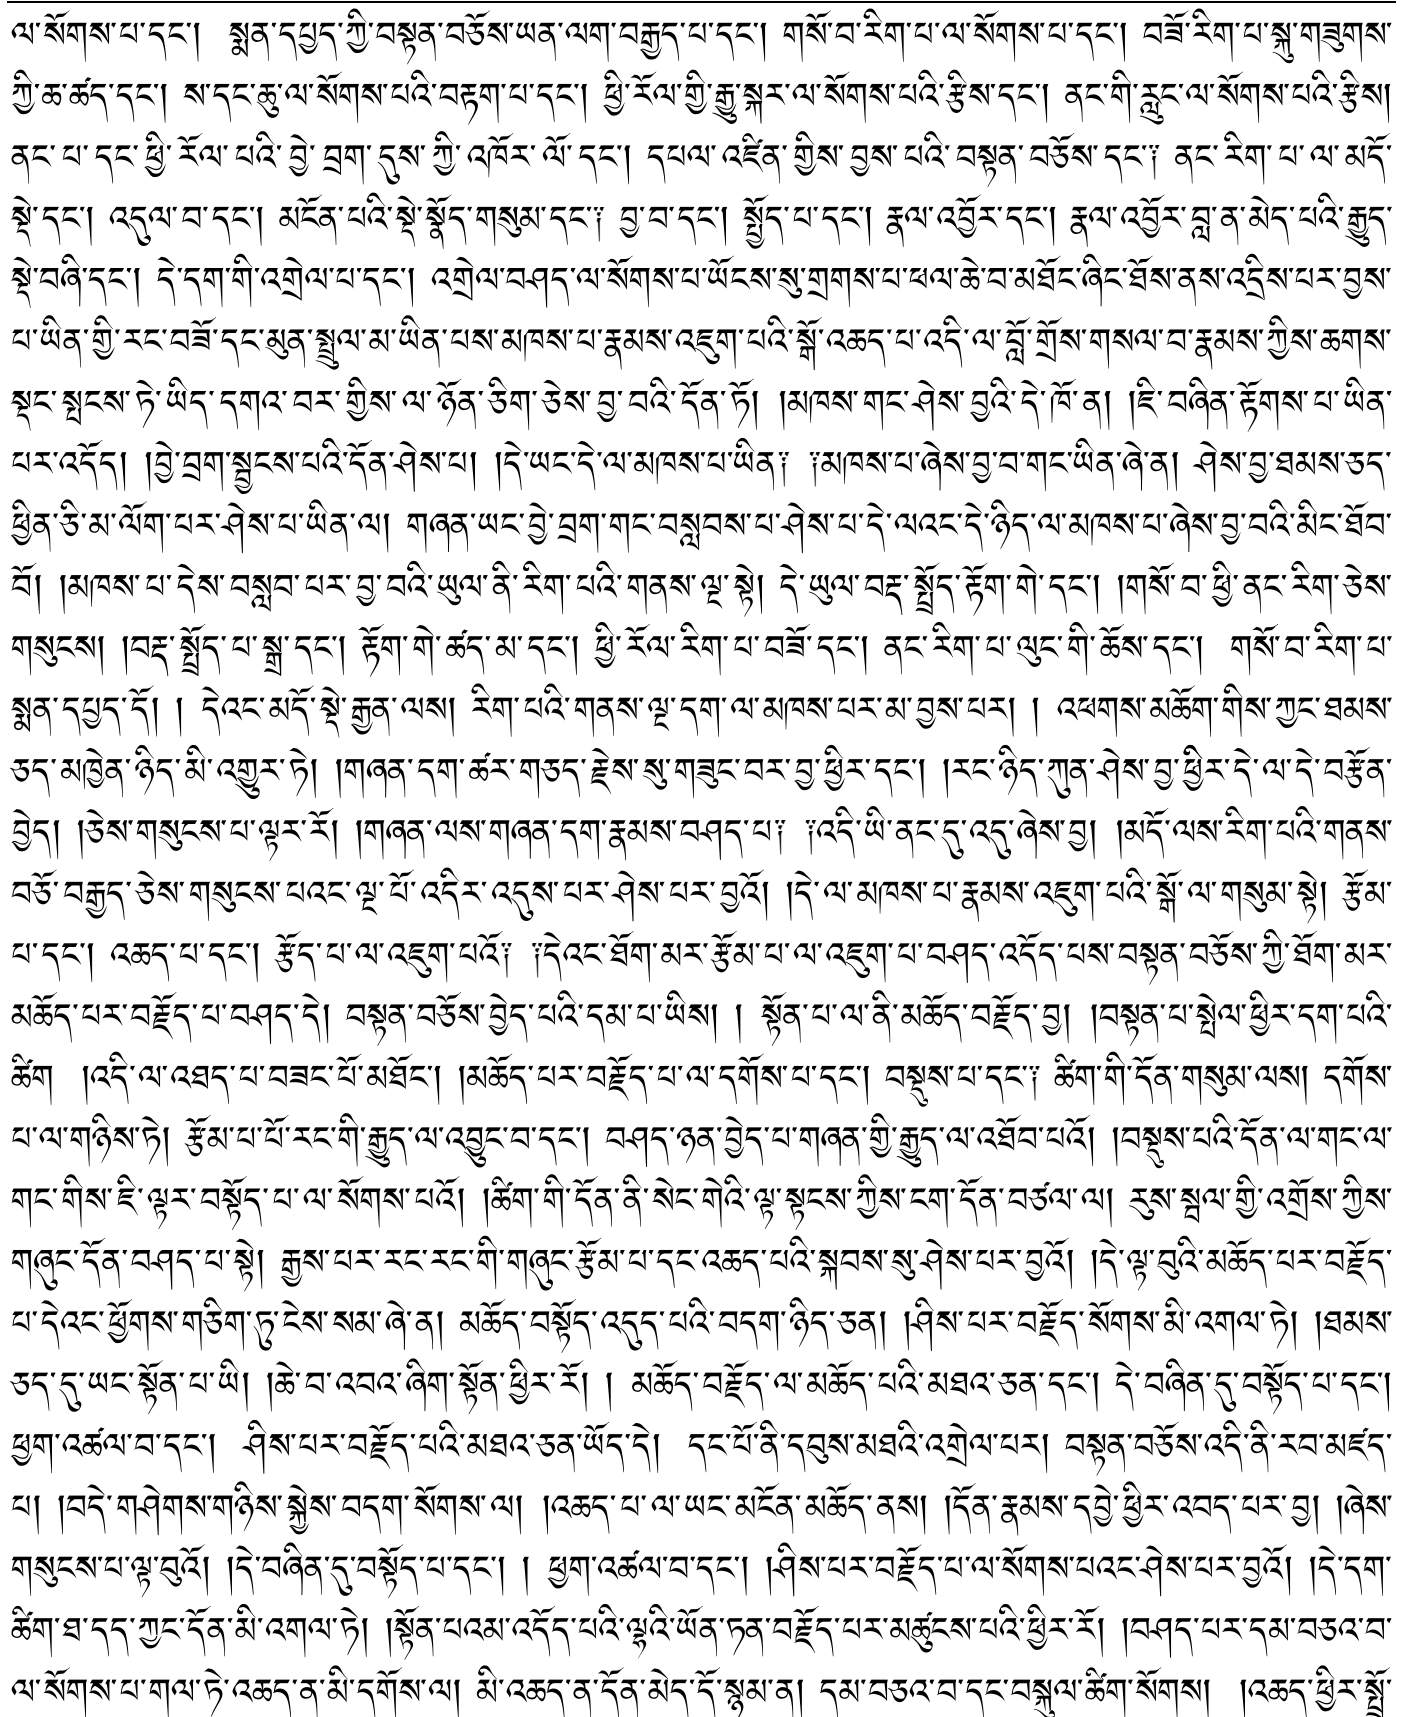 ལ་སོགས་པ་དང་། སྨན་དཔྱད་ཀྱི་བསྟན་བཅོས་ཡན་ལག་བརྒྱད་པ་དང་། གསོ་བ་རིག་པ་ལ་སོགས་པ་དང་། བཟོ་རིག་པ་སྐུ་གཟུགས་
ཀྱི་ཆ་ཚད་དང་། ས་དང་ཆུ་ལ་སོགས་པའི་བརྟག་པ་དང་། ཕྱི་རོལ་གྱི་རྒྱུ་སྐར་ལ་སོགས་པའི་རྩིས་དང་། ནང་གི་རླུང་ལ་སོགས་པའི་རྩིས།
ནང་པ་དང་ཕྱི་རོལ་པའི་བྱེ་བྲག་དུས་ཀྱི་འཁོར་ལོ་དང་། དཔལ་འཛིན་གྱིས་བྱས་པའི་བསྟན་བཅོས་དང་༑ ནང་རིག་པ་ལ་མདོ་
སྡེ་དང་། འདུལ་བ་དང་། མངོན་པའི་སྡེ་སྣོད་གསུམ་དང་༑ བྱ་བ་དང་། སྤྱོད་པ་དང་། རྣལ་འབྱོར་དང་། རྣལ་འབྱོར་བླ་ན་མེད་པའི་རྒྱུད་
སྡེ་བཞི་དང་། དེ་དག་གི་འགྲེལ་པ་དང་། འགྲེལ་བཤད་ལ་སོགས་པ་ཡོངས་སུ་གྲགས་པ་ཕལ་ཆེ་བ་མཐོང་ཞིང་ཐོས་ནས་འདྲིས་པར་བྱས་
པ་ཡིན་གྱི་རང་བཟོ་དང་མུན་སྤྲུལ་མ་ཡིན་པས་མཁས་པ་རྣམས་འཇུག་པའི་སྒོ་འཆད་པ་འདི་ལ་བློ་གྲོས་གསལ་བ་རྣམས་ཀྱིས་ཆགས་
སྡང་སྤངས་ཏེ་ཡིད་དགའ་བར་གྱིས་ལ་ཉོན་ཅིག་ཅེས་བྱ་བའི་དོན་ཏོ། །མཁས་གང་ཤེས་བྱའི་དེ་ཁོ་ན། །ཇི་བཞིན་རྟོགས་པ་ཡིན་
པར་འདོད། །བྱེ་བྲག་སྦྱངས་པའི་དོན་ཤེས་པ། །དེ་ཡང་དེ་ལ་མཁས་པ་ཡིན༑ ༑མཁས་པ་ཞེས་བྱ་བ་གང་ཡིན་ཞེ་ན། ཤེས་བྱ་ཐམས་ཅད་
ཕྱིན་ཅི་མ་ལོག་པར་ཤེས་པ་ཡིན་ལ། གཞན་ཡང་བྱེ་བྲག་གང་བསླབས་པ་ཤེས་པ་དེ་ལའང་དེ་ཉིད་ལ་མཁས་པ་ཞེས་བྱ་བའི་མིང་ཐོབ་
བོ། །མཁས་པ་དེས་བསླབ་པར་བྱ་བའི་ཡུལ་ནི་རིག་པའི་གནས་ལྔ་སྟེ། དེ་ཡུལ་བརྡ་སྤྲོད་རྟོག་གེ་དང་། །གསོ་བ་ཕྱི་ནང་རིག་ཅེས་
གསུངས། །བརྡ་སྤྲོད་པ་སྒྲ་དང་། རྟོག་གེ་ཚད་མ་དང་། ཕྱི་རོལ་རིག་པ་བཟོ་དང་། ནང་རིག་པ་ལུང་གི་ཆོས་དང་། གསོ་བ་རིག་པ་
སྨན་དཔྱད་དོ། ། དེའང་མདོ་སྡེ་རྒྱན་ལས། རིག་པའི་གནས་ལྔ་དག་ལ་མཁས་པར་མ་བྱས་པར། ། འཕགས་མཆོག་གིས་ཀྱང་ཐམས་
ཅད་མཁྱེན་ཉིད་མི་འགྱུར་ཏེ། །གཞན་དག་ཚར་གཅད་རྗེས་སུ་གཟུང་བར་བྱ་ཕྱིར་དང་། །རང་ཉིད་ཀུན་ཤེས་བྱ་ཕྱིར་དེ་ལ་དེ་བརྩོན་
བྱེད། །ཅེས་གསུངས་པ་ལྟར་རོ། །གཞན་ལས་གཞན་དག་རྣམས་བཤད་པ༑ ༑འདི་ཡི་ནང་དུ་འདུ་ཞེས་བྱ། །མདོ་ལས་རིག་པའི་གནས་
བཅོ་བརྒྱད་ཅེས་གསུངས་པའང་ལྔ་པོ་འདིར་འདུས་པར་ཤེས་པར་བྱའོ། །དེ་ལ་མཁས་པ་རྣམས་འཇུག་པའི་སྒོ་ལ་གསུམ་སྟེ། རྩོམ་
པ་དང་། འཆད་པ་དང་། རྩོད་པ་ལ་འཇུག་པའོ༑ ༑དེའང་ཐོག་མར་རྩོམ་པ་ལ་འཇུག་པ་བཤད་འདོད་པས་བསྟན་བཅོས་ཀྱི་ཐོག་མར་
མཆོད་པར་བརྗོད་པ་བཤད་དེ། བསྟན་བཅོས་བྱེད་པའི་དམ་པ་ཡིས། ། སྟོན་པ་ལ་ནི་མཆོད་བརྗོད་བྱ། །བསྟན་པ་སྤེལ་ཕྱིར་དག་པའི་
ཚིག །འདི་ལ་འཐད་པ་བཟང་པོ་མཐོང་། །མཆོད་པར་བརྗོད་པ་ལ་དགོས་པ་དང་། བསྡུས་པ་དང་༑ ཚིག་གི་དོན་གསུམ་ལས། དགོས་
པ་ལ་གཉིས་ཏེ། རྩོམ་པ་པོ་རང་གི་རྒྱུད་ལ་འབྱུང་བ་དང་། བཤད་ཉན་བྱེད་པ་གཞན་གྱི་རྒྱུད་ལ་འཐོབ་པའོ། །བསྡུས་པའི་དོན་ལ་གང་ལ་
གང་གིས་ཇི་ལྟར་བསྟོད་པ་ལ་སོགས་པའོ། །ཚིག་གི་དོན་ནི་སེང་གེའི་ལྟ་སྟངས་ཀྱིས་ངག་དོན་བཙལ་ལ། རུས་སྦལ་གྱི་འགྲོས་ཀྱིས་
གཞུང་དོན་བཤད་པ་སྟེ། རྒྱས་པར་རང་རང་གི་གཞུང་རྩོམ་པ་དང་འཆད་པའི་སྐབས་སུ་ཤེས་པར་བྱའོ། །དེ་ལྟ་བུའི་མཆོད་པར་བརྗོད་
པ་དེའང་ཕྱོགས་གཅིག་ཏུ་ངེས་སམ་ཞེ་ན། མཆོད་བསྟོད་འདུད་པའི་བདག་ཉིད་ཅན། །ཤིས་པར་བརྗོད་སོགས་མི་འགལ་ཏེ། །ཐམས་
ཅད་དུ་ཡང་སྟོན་པ་ཡི། །ཆེ་བ་འབའ་ཞིག་སྟོན་ཕྱིར་རོ། ། མཆོད་བརྗོད་ལ་མཆོད་པའི་མཐའ་ཅན་དང་། དེ་བཞིན་དུ་བསྟོད་པ་དང་།
ཕྱག་འཚལ་བ་དང་། ཤིས་པར་བརྗོད་པའི་མཐའ་ཅན་ཡོད་དེ། དང་པོ་ནི་དབུས་མཐའི་འགྲེལ་པར། བསྟན་བཅོས་འདི་ནི་རབ་མཛད་
པ། །བདེ་གཤེགས་གཉིས་སྐྱེས་བདག་སོགས་ལ། །འཆད་པ་ལ་ཡང་མངོན་མཆོད་ནས། །དོན་རྣམས་དབྱེ་ཕྱིར་འབད་པར་བྱ། །ཞེས་
གསུངས་པ་ལྟ་བུའོ། །དེ་བཞིན་དུ་བསྟོད་པ་དང་། ། ཕྱག་འཚལ་བ་དང་། །ཤིས་པར་བརྗོད་པ་ལ་སོགས་པའང་ཤེས་པར་བྱའོ། །དེ་དག་
ཚིག་ཐ་དད་ཀྱང་དོན་མི་འགལ་ཏེ། །སྟོན་པའམ་འདོད་པའི་ལྷའི་ཡོན་ཏན་བརྗོད་པར་མཚུངས་པའི་ཕྱིར་རོ། །བཤད་པར་དམ་བཅའ་བ་
ལ་སོགས་པ་གལ་ཏེ་འཆད་ན་མི་དགོས་ལ། མི་འཆད་ན་དོན་མེད་དོ་སྙམ་ན། དམ་བཅའ་བ་དང་བསྐུལ་ཚིག་སོགས། །འཆད་ཕྱིར་སྤྲོ་